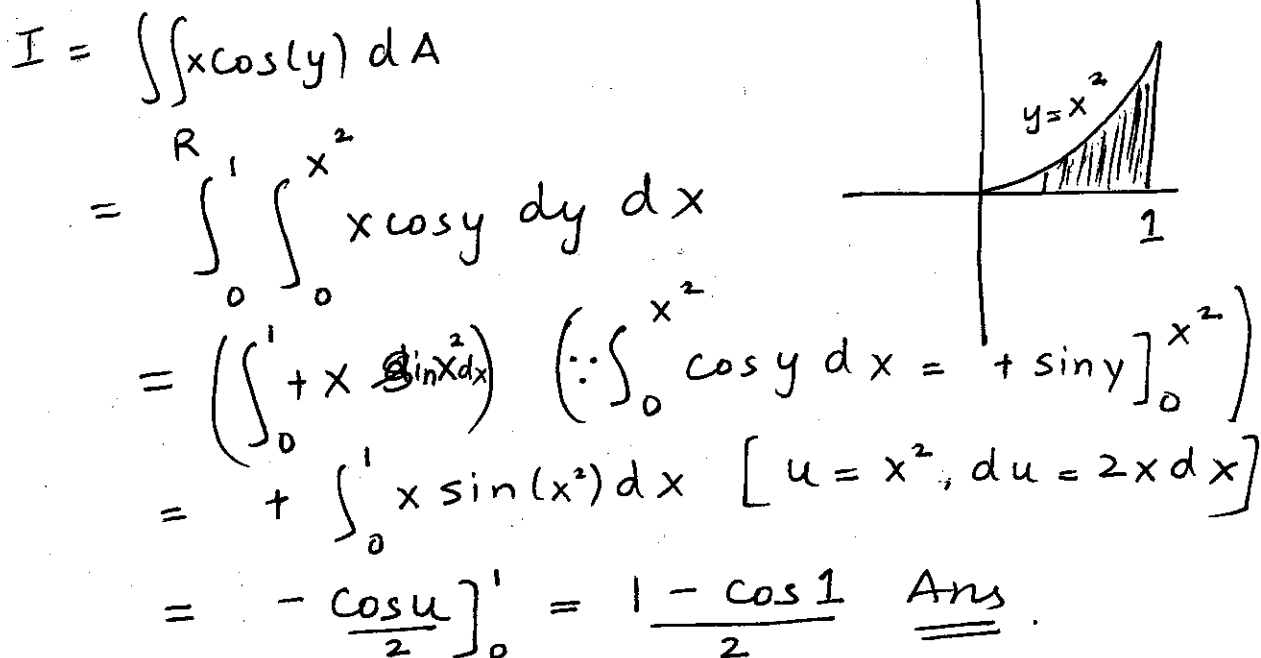 I = ∬ x cos(y) dA
R
y = x²
1
= ∫₀¹ ∫₀^{x²} x cos y dy dx
= (∫₀¹ + x sin x² dx) (∵ ∫₀^{x²} cos y dx = + sin y]₀^{x²})
= + ∫₀¹ x sin(x²) dx [u = x², du = 2x dx]
= - cos u / 2 ]₀¹ = 1 - cos 1 / 2 Ans.